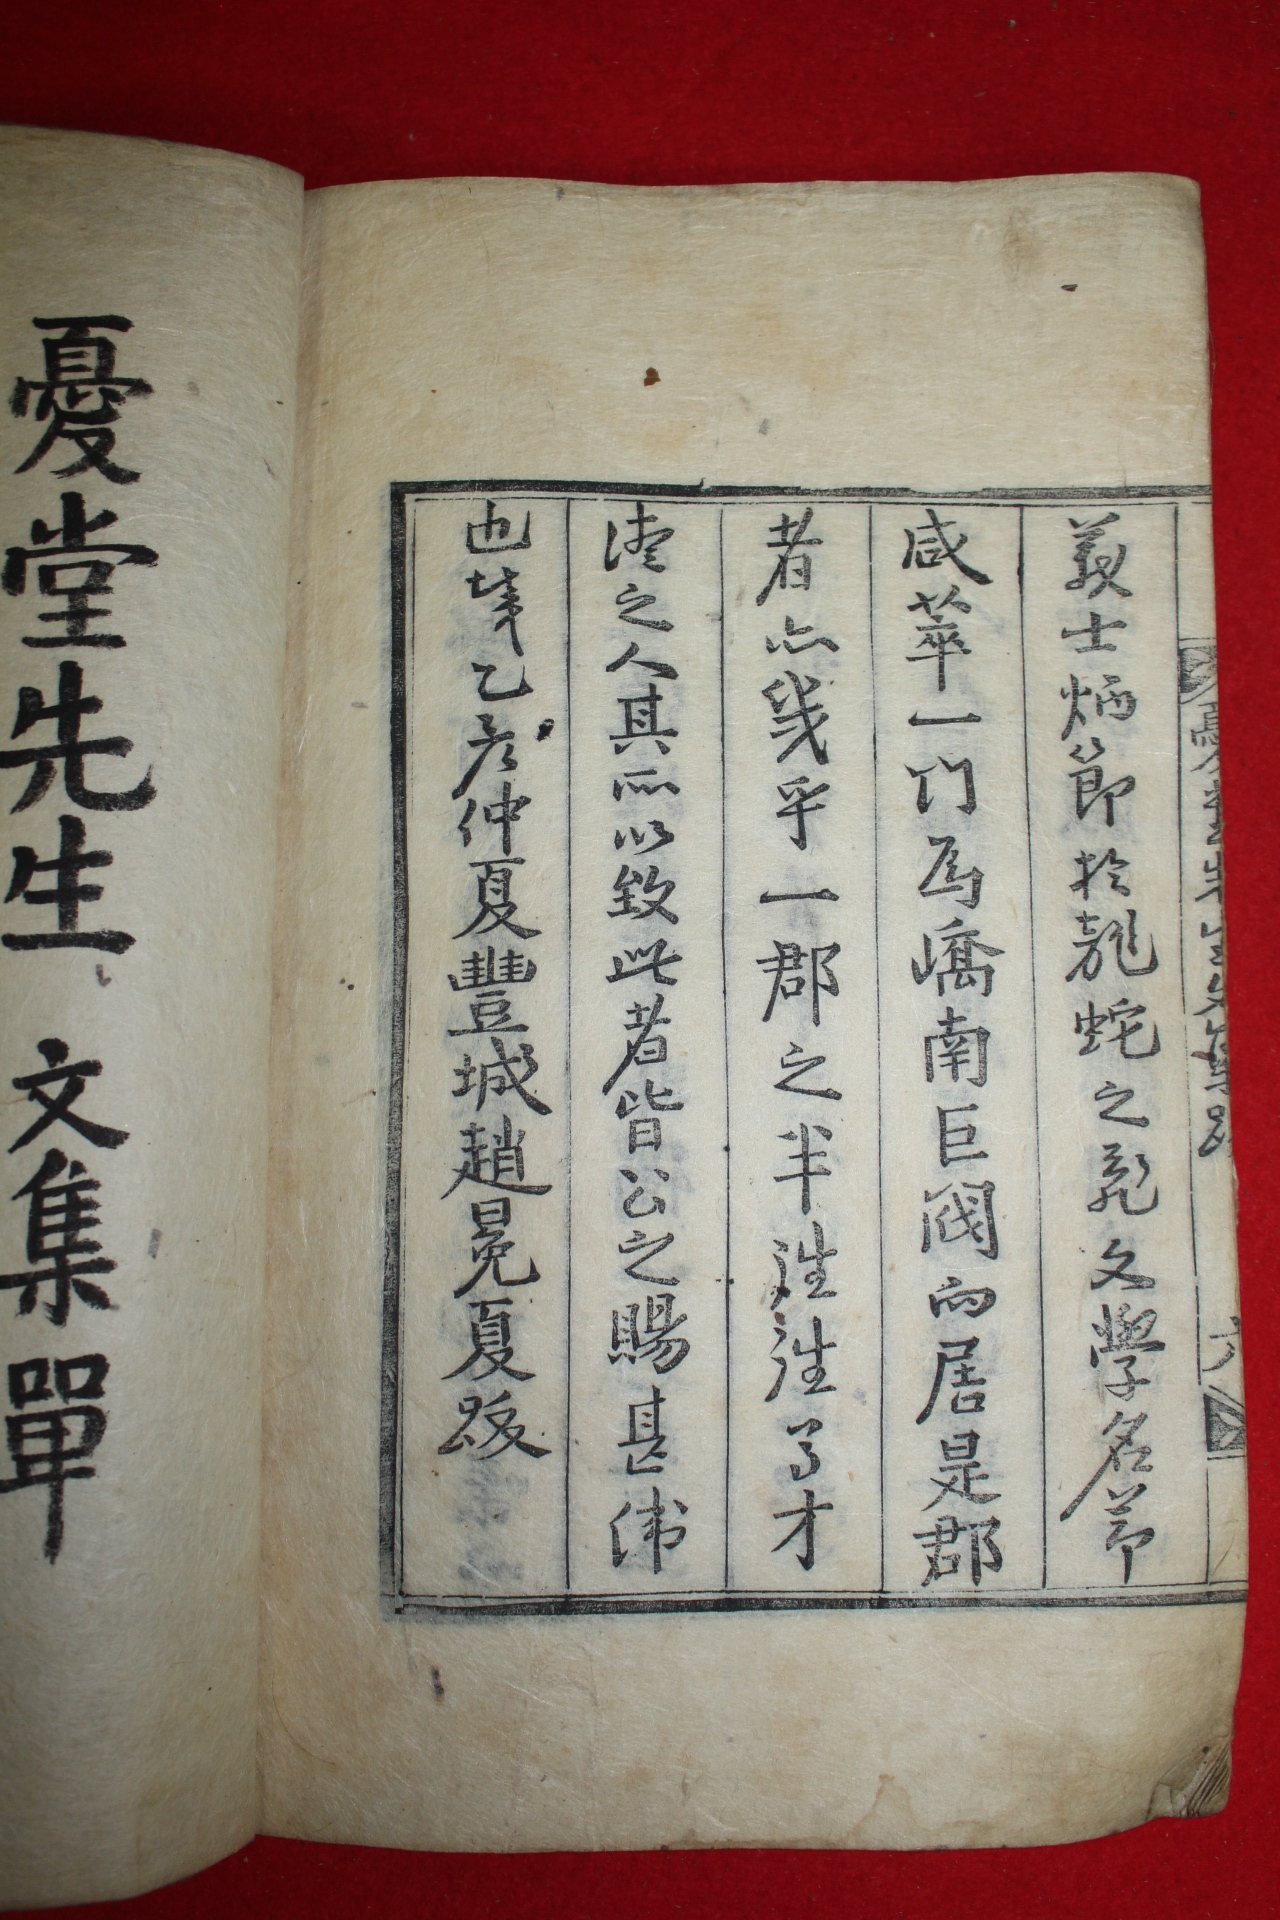 義士炳節於龍蛇之亂文學名節
咸萃一門爲嶠南巨閥而居是郡
者亦幾乎一郡之半往往多才
之人其所以致此者皆公之賜甚偉
也歲乙亥仲夏豐城趙冕夏跋
憂堂先生文集單